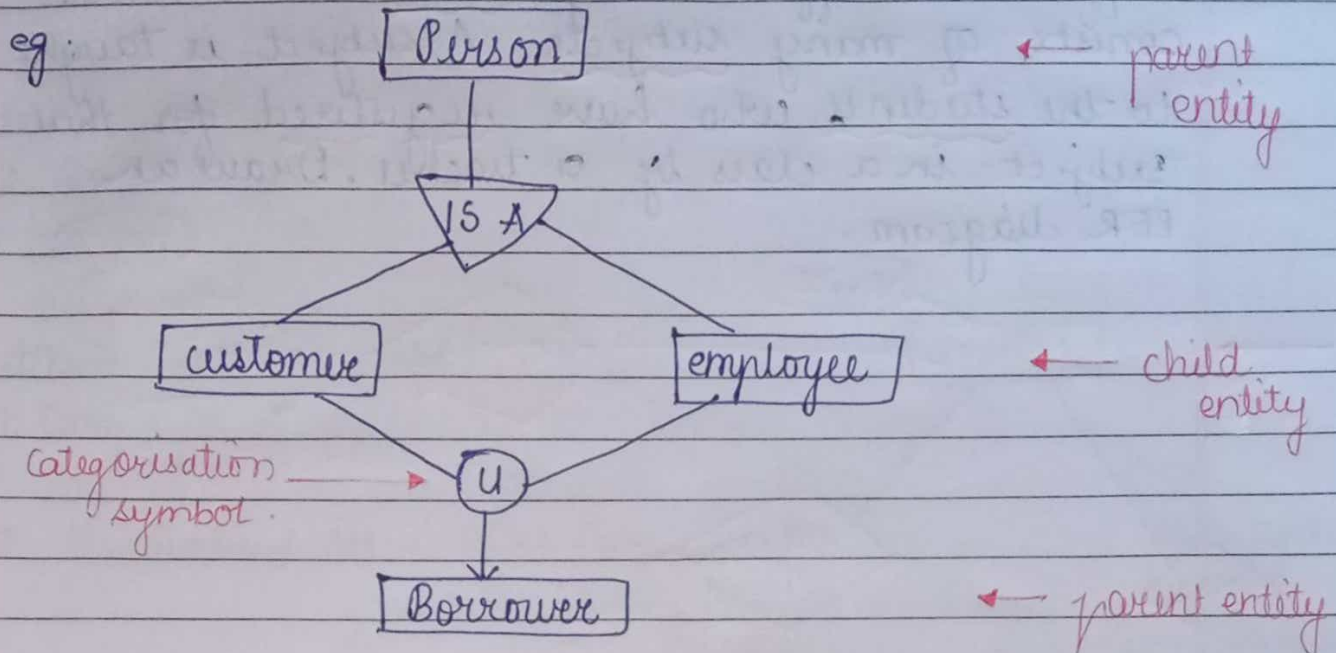 eg:
Person
parent
entity
IS A
customer
employee
child
entity
categorisation
symbol.
U
Borrower
parent entity